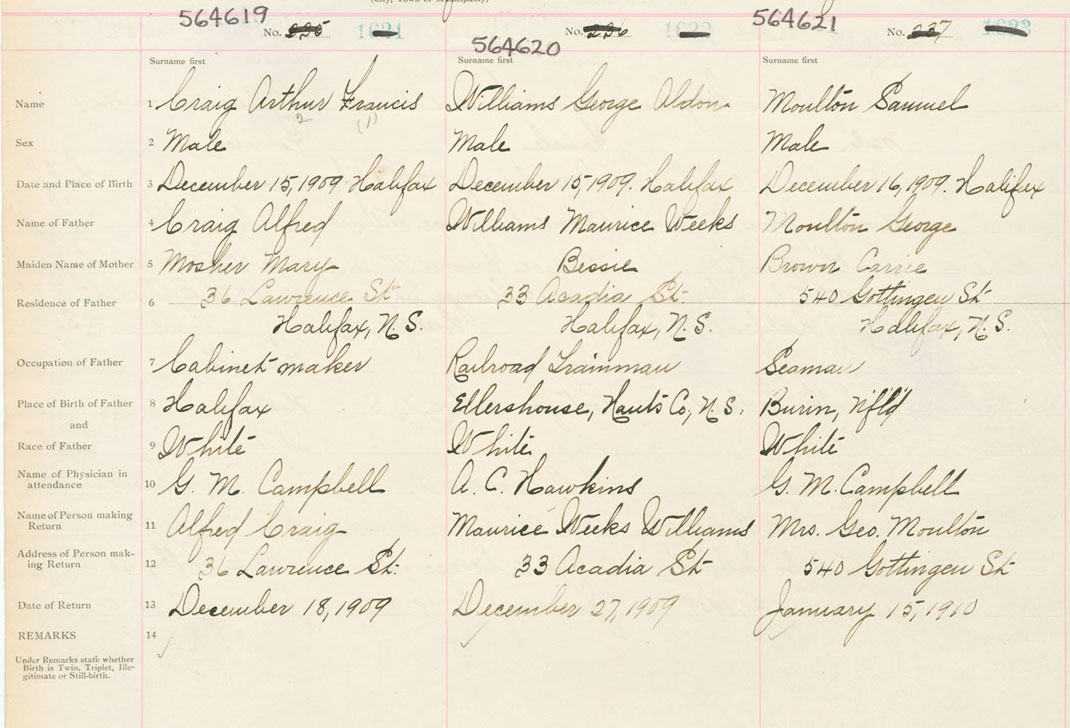 (City, Town or Municipality)
564619 564620 564621
No. 235 1621 No. 236 1622 No. 237 1623
Surname first Surname first Surname first
Name 1 Craig Arthur Francis Williams George Aldon Moulton Samuel
2 (1)
Sex 2 Male Male Male
Date and Place of Birth 3 December 15, 1909 Halifax December 15, 1909. Halifax December 16, 1909. Halifax
Name of Father 4 Craig Alfred Williams Maurice Weeks Moulton George
Maiden Name of Mother 5 Mosher Mary Bessie Brown Carrie
Residence of Father 6 36 Lawrence St 33 Acadia St. 540 Gottingen St
Halifax, N.S. Halifax, N.S. Halifax, N.S.
Occupation of Father 7 Cabinet maker Railroad Trainman Seaman
Place of Birth of Father 8 Halifax Ellershouse, Hants Co, N.S. Burin, Nfld
and
Race of Father 9 White White White
Name of Physician in attendance 10 G. M. Campbell A. C. Hawkins G. M. Campbell
Name of Person making Return 11 Alfred Craig Maurice Weeks Williams Mrs. Geo. Moulton
Address of Person mak-
ing Return 12 36 Lawrence St. 33 Acadia St 540 Gottingen St
Date of Return 13 December 18, 1909 December 27, 1909 January 15, 1910
REMARKS 14
Under Remarks state whether
Birth is Twin, Triplet, Ille-
gitimate or Still-birth.